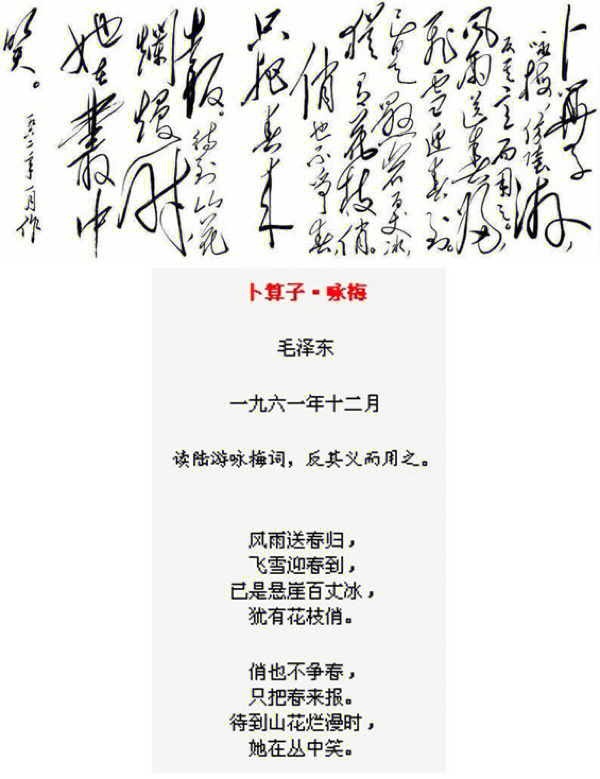 卜算子,
咏梅,依陸游,
反其意而用之。
风雨送春归,
飛雪迎春到。
已是懸岩百丈冰,
猶有花枝俏。
俏
也不争春,
只把春来
报。待到山花
爛熳时
她在叢中
笑。
一九六二年一月作
卜算子·咏梅
毛泽东
一九六一年十二月
读陆游咏梅词，反其义而用之。
风雨送春归，
飞雪迎春到，
已是悬崖百丈冰，
犹有花枝俏。
俏也不争春，
只把春来报。
待到山花烂漫时，
她在丛中笑。